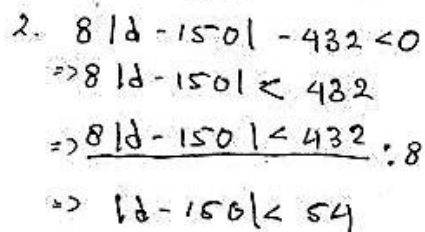 2. 8 |d - 150| - 432 < 0
=> 8 |d - 150| < 432
=> 8 |d - 150| < 432 : 8
=> |d - 150| < 54